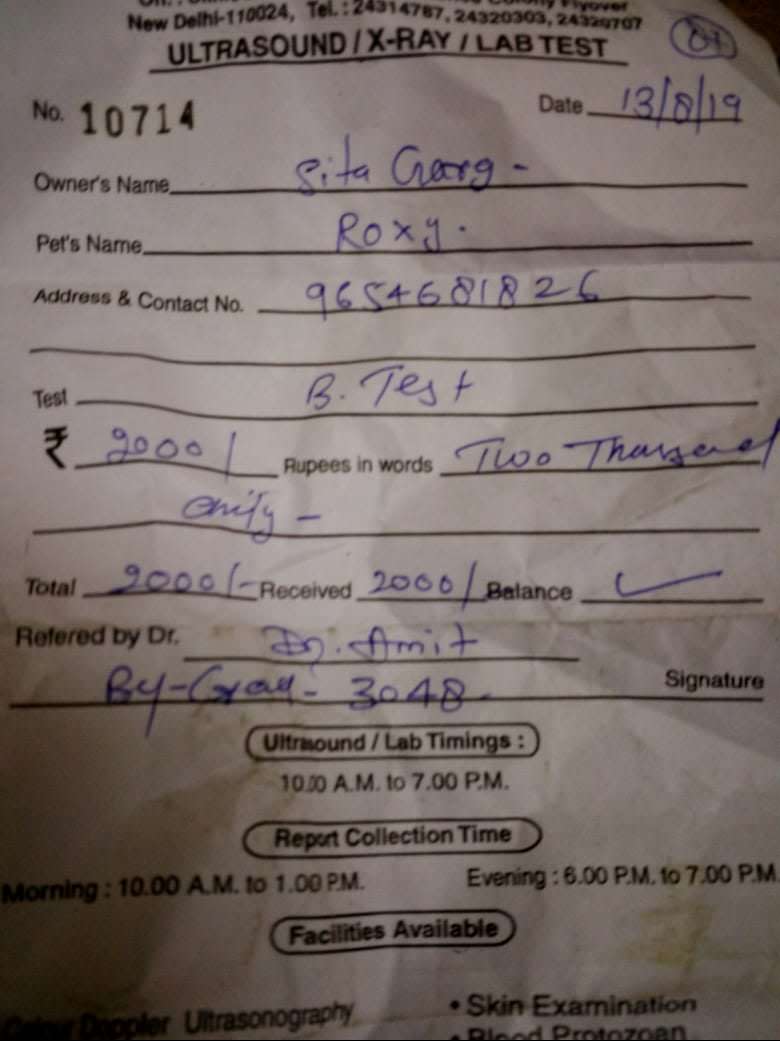 Colony Flyover
New Delhi-110024, Tel.: 24314787, 24320303, 24320707
ULTRASOUND / X-RAY / LAB TEST
No. 10714 Date 13/8/19
Owner's Name Sita Garg -
Pet's Name Roxy.
Address & Contact No. 9654681826
Test B. Test
₹ 2000/ Rupees in words Two Thousand
only -
Total 2000/- Received 2000/ Balance
Refered by Dr. Dr. Amit
By- 3048 Signature
Ultrasound / Lab Timings :
10.00 A.M. to 7.00 P.M.
Report Collection Time
Morning : 10.00 A.M. to 1.00 P.M. Evening : 6.00 P.M. to 7.00 P.M.
Facilities Available
Colour Doppler Ultrasonography • Skin Examination
• Blood Protozoan